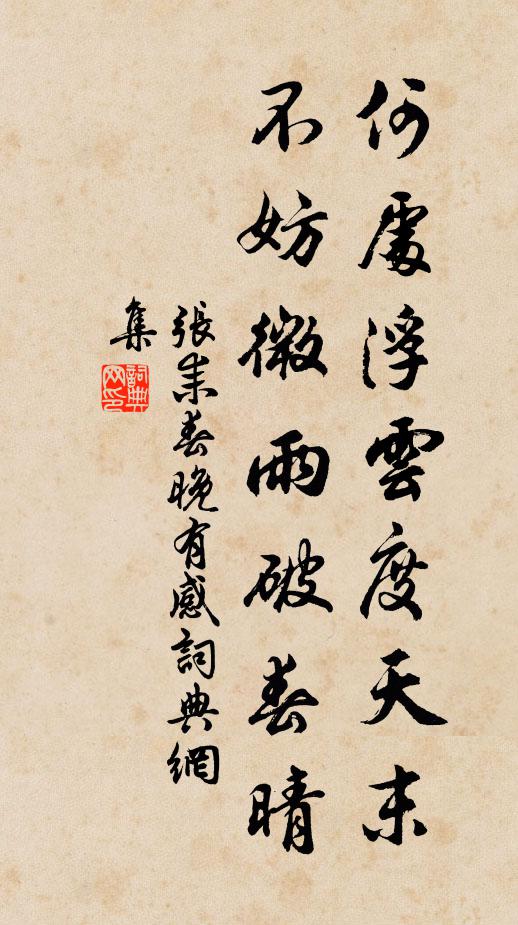 何處浮雲度天末
不妨微雨破春晴
張耒春晚有感詞典網
集
詞典
网印